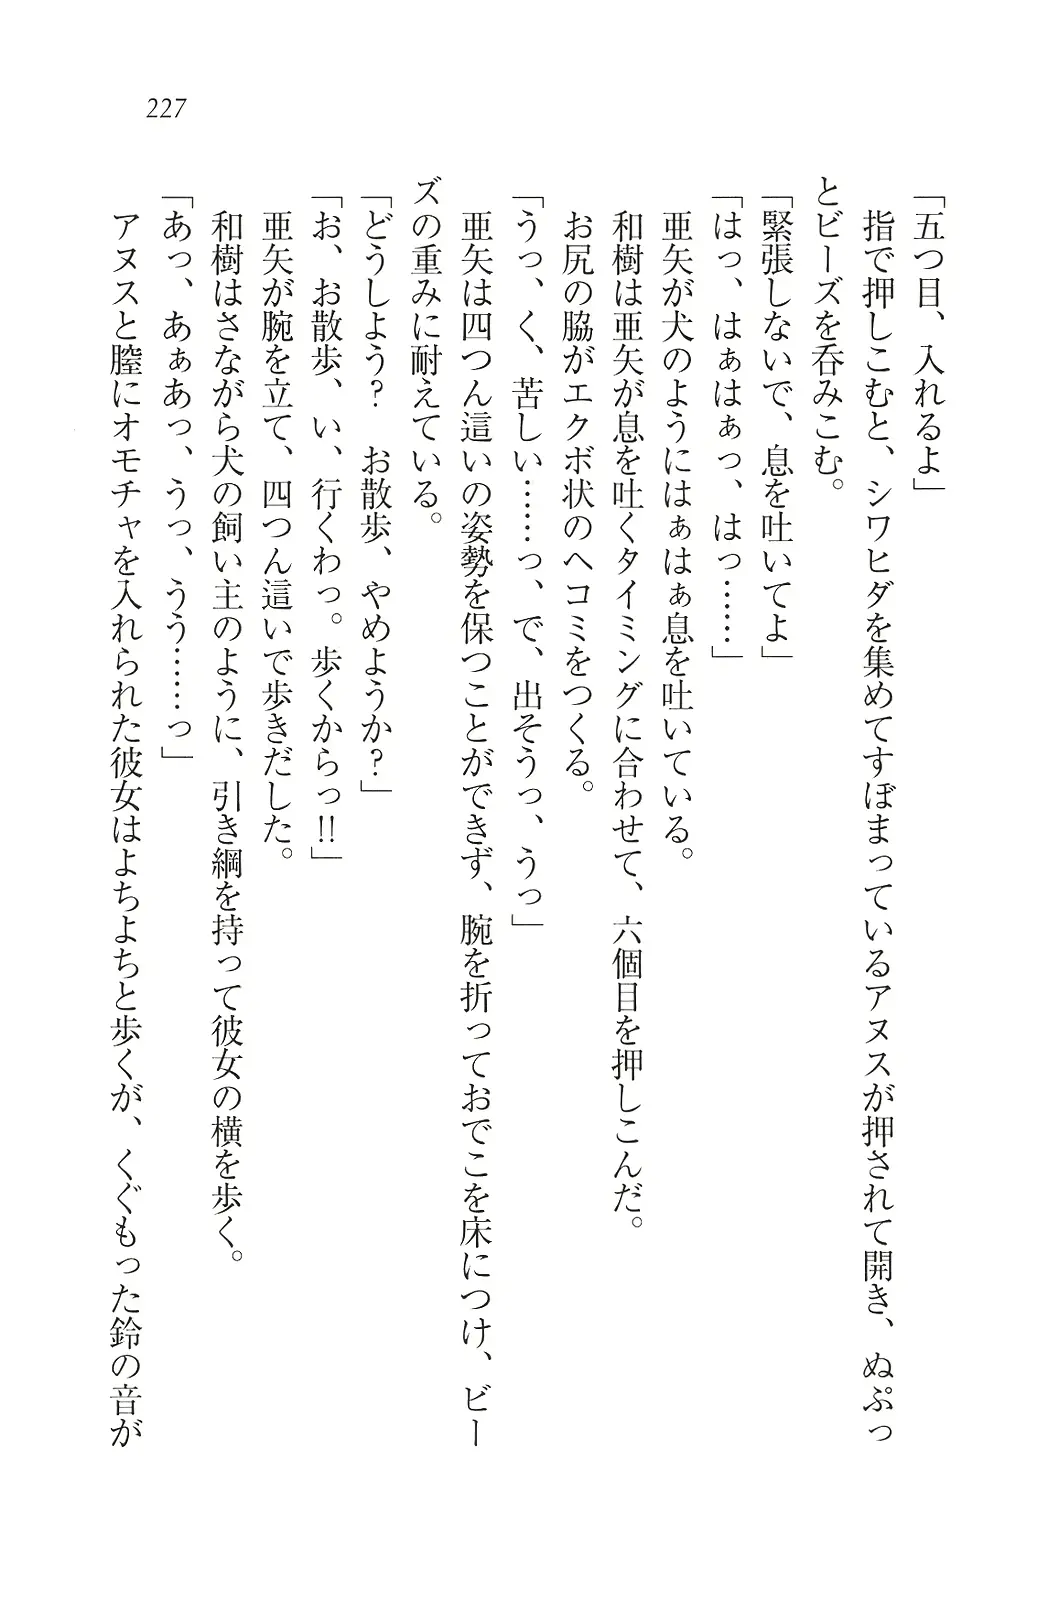 227
「五つ目、入れるよ」
指で押しこむと、シワヒダを集めてすぼまっているアヌスが押されて開き、ぬぷっ
とビーズを呑みこむ。
「緊張しないで、息を吐いてよ」
「はっ、はぁはぁっ、はっ……」
亜矢が犬のようにはぁはぁ息を吐いている。
和樹は亜矢が息を吐くタイミングに合わせて、六個目を押しこんだ。
お尻の脇がエクボ状のヘコミをつくる。
「うっ、く、苦しい……っ、で、出そうっ、うっ」
亜矢は四つん這いの姿勢を保つことができず、腕を折っておでこを床につけ、ビー
ズの重みに耐えている。
「どうしよう？　お散歩、やめようか？」
「お、お散歩、い、行くわっ。歩くからっ!!」
亜矢が腕を立て、四つん這いで歩きだした。
和樹はさながら犬の飼い主のように、引き綱を持って彼女の横を歩く。
「あっ、あぁあっ、うっ、うう……っ」
アヌスと膣にオモチャを入れられた彼女はよちよちと歩くが、くぐもった鈴の音が